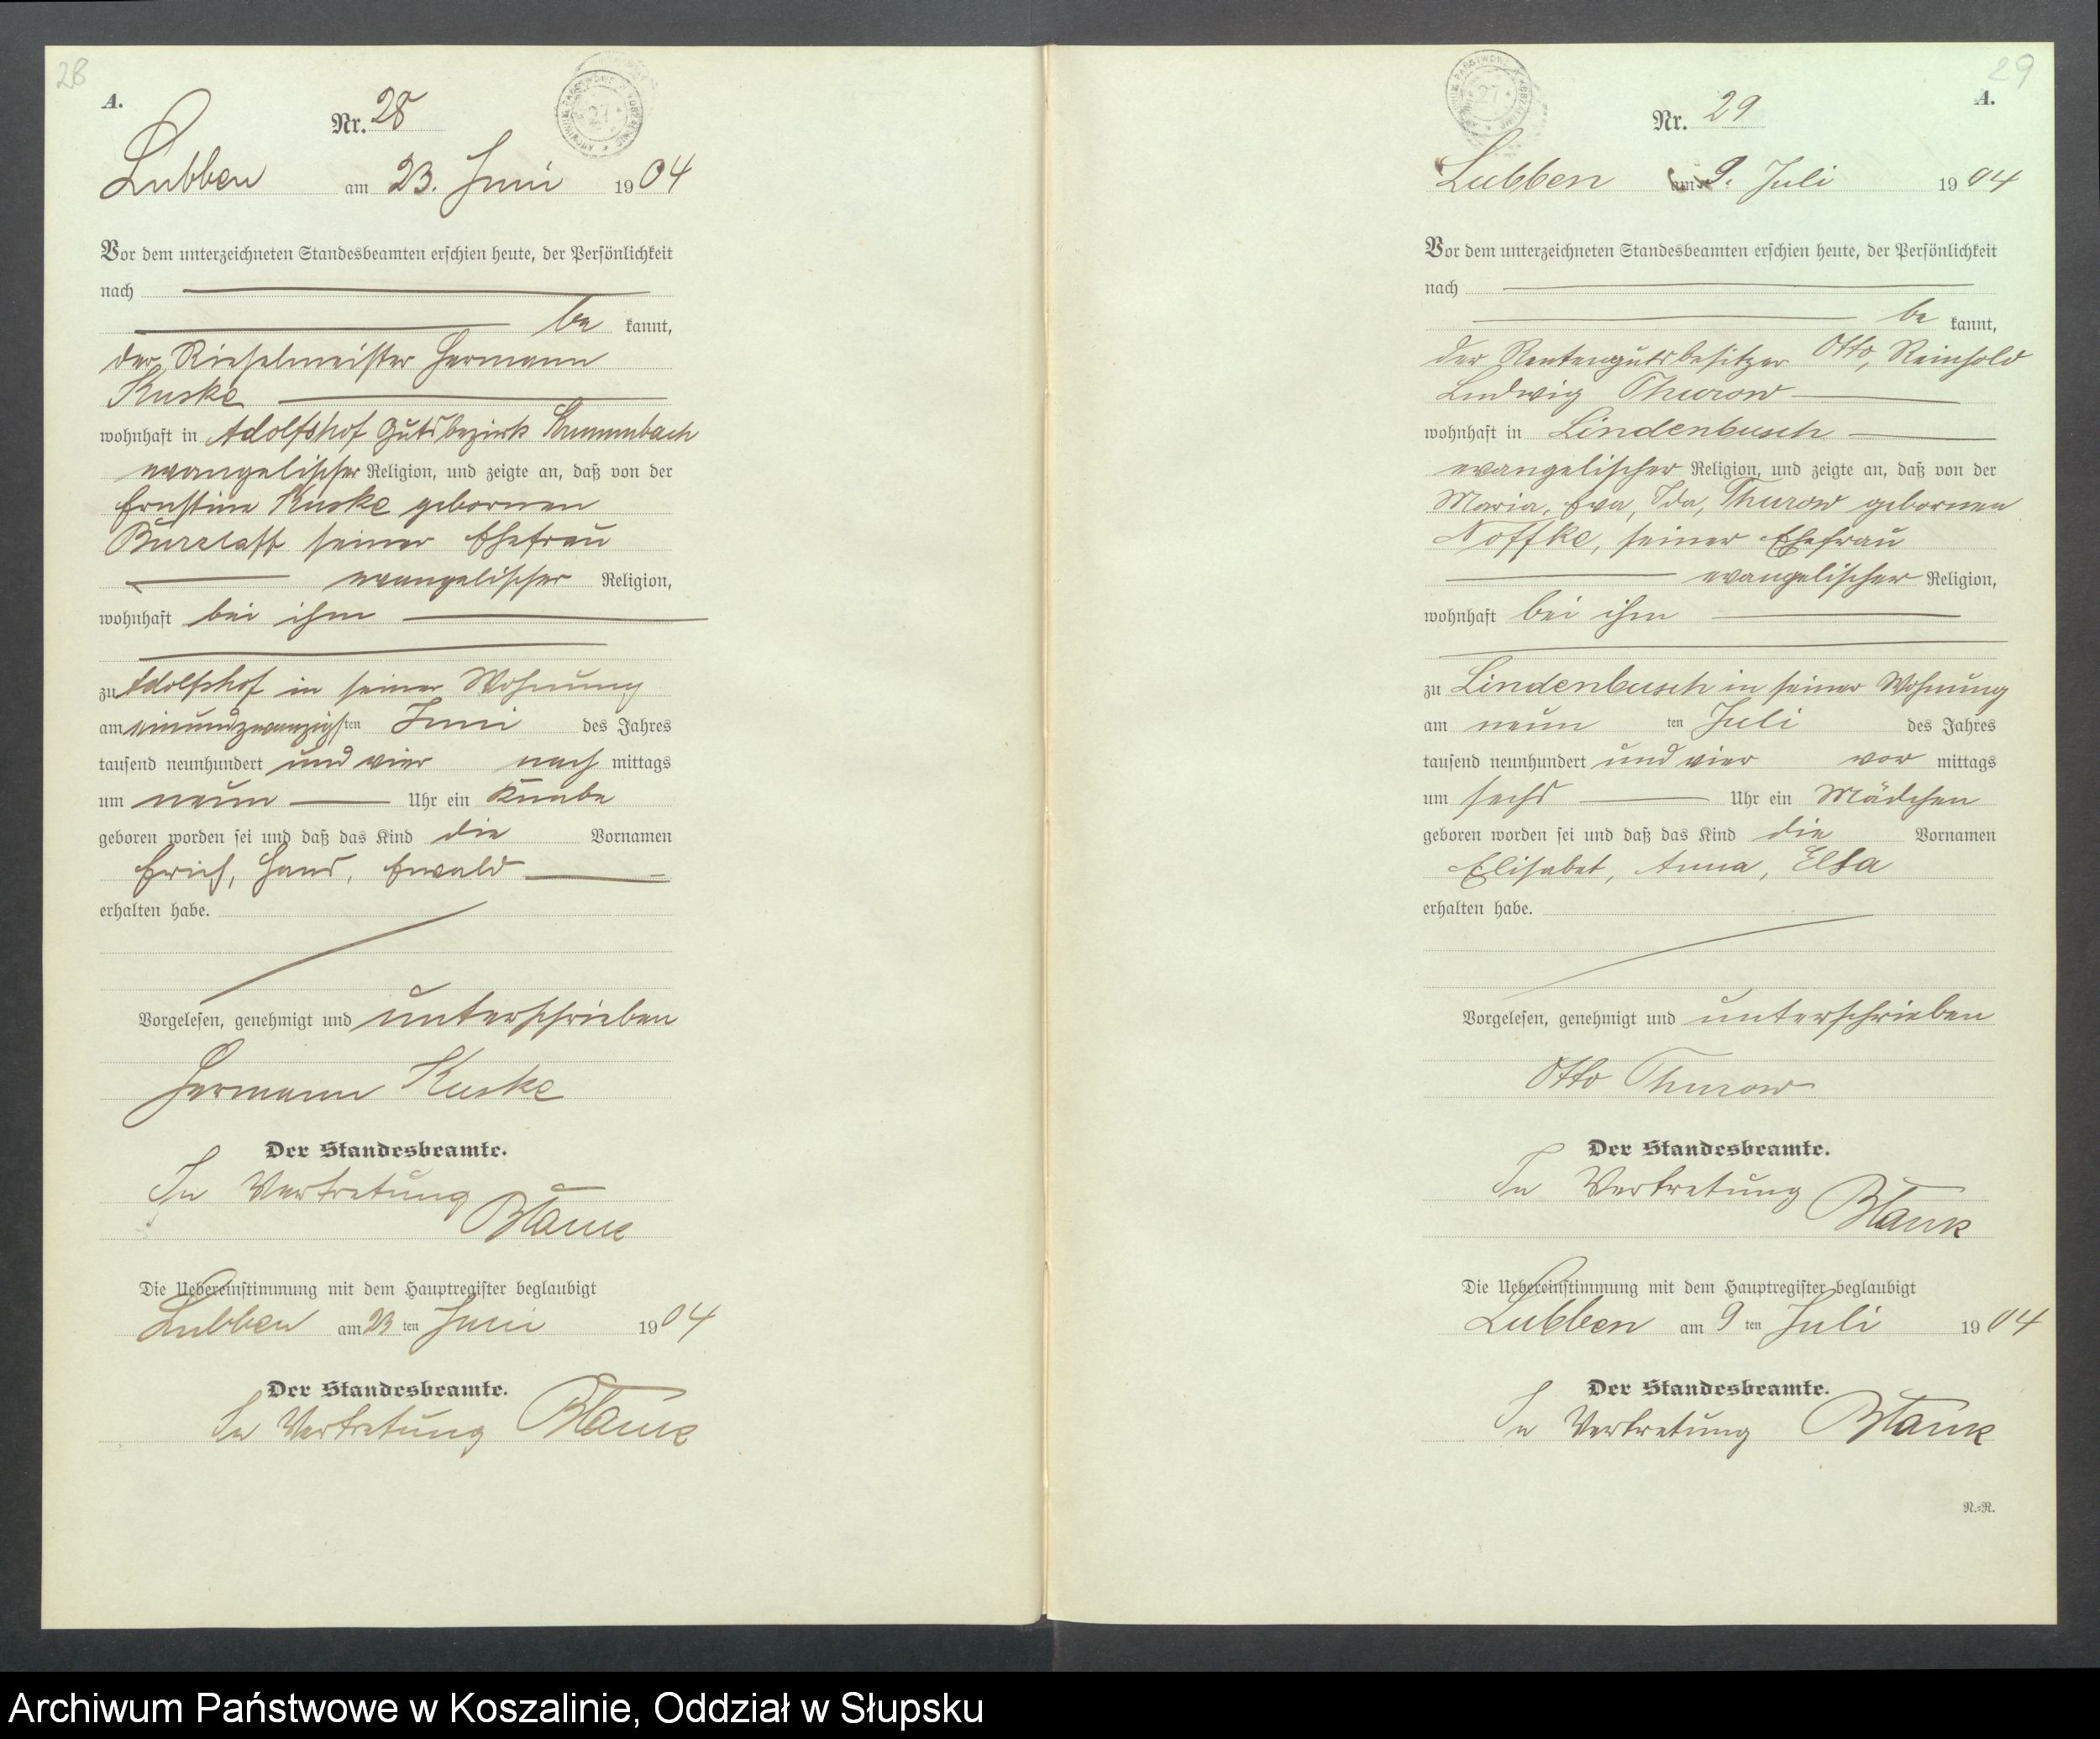 28
A.
Nr. 28
Lubben am 23. Juni 1904
Vor dem unterzeichneten Standesbeamten erschien heute, der Persönlichkeit
nach
be kannt,
der Rieselmeister Hermann
Kuske
wohnhaft in Adolfshof Gutsbezirk
evangelischer Religion, und zeigte an, daß von der
Ernstine Kuske gebornen
Burzlaff seiner Ehefrau
evangelischer Religion,
wohnhaft bei ihm
zu Adolfshof in seiner Wohnung
am einundzwanzigsten Juni des Jahres
tausend neunhundert und vier nach mittags
um neun Uhr ein Knabe
geboren worden sei und daß das Kind die Vornamen
Erich, Hans, Ewald
erhalten habe.
Vorgelesen, genehmigt und unterschrieben
Hermann Kuske
Der Standesbeamte.
In Vertretung
Blank
Die Uebereinstimmung mit dem Hauptregister beglaubigt
Lubben am 23 ten Juni 1904
Der Standesbeamte.
In Vertretung Blank
29
A.
Nr. 29
Lubben am 9. Juli 1904
Vor dem unterzeichneten Standesbeamten erschien heute, der Persönlichkeit
nach
be kannt,
der Rentengutsbesitzer Otto, Reinhold
Ludwig Thurow
wohnhaft in Lindenbusch
evangelischer Religion, und zeigte an, daß von der
Maria, Eva, Ida, Thurow gebornen
Noffke, seiner Ehefrau
evangelischer Religion,
wohnhaft bei ihm
zu Lindenbusch in seiner Wohnung
am neun ten Juli des Jahres
tausend neunhundert und vier vor mittags
um sechs Uhr ein Mädchen
geboren worden sei und daß das Kind die Vornamen
Elisabet, Anna, Elsa
erhalten habe.
Vorgelesen, genehmigt und unterschrieben
Otto Thurow
Der Standesbeamte.
In Vertretung
Blank
Die Uebereinstimmung mit dem Hauptregister beglaubigt
Lubben am 9 ten Juli 1904
Der Standesbeamte.
In Vertretung Blank
N.-R.
Archiwum Państwowe w Koszalinie, Oddział w Słupsku